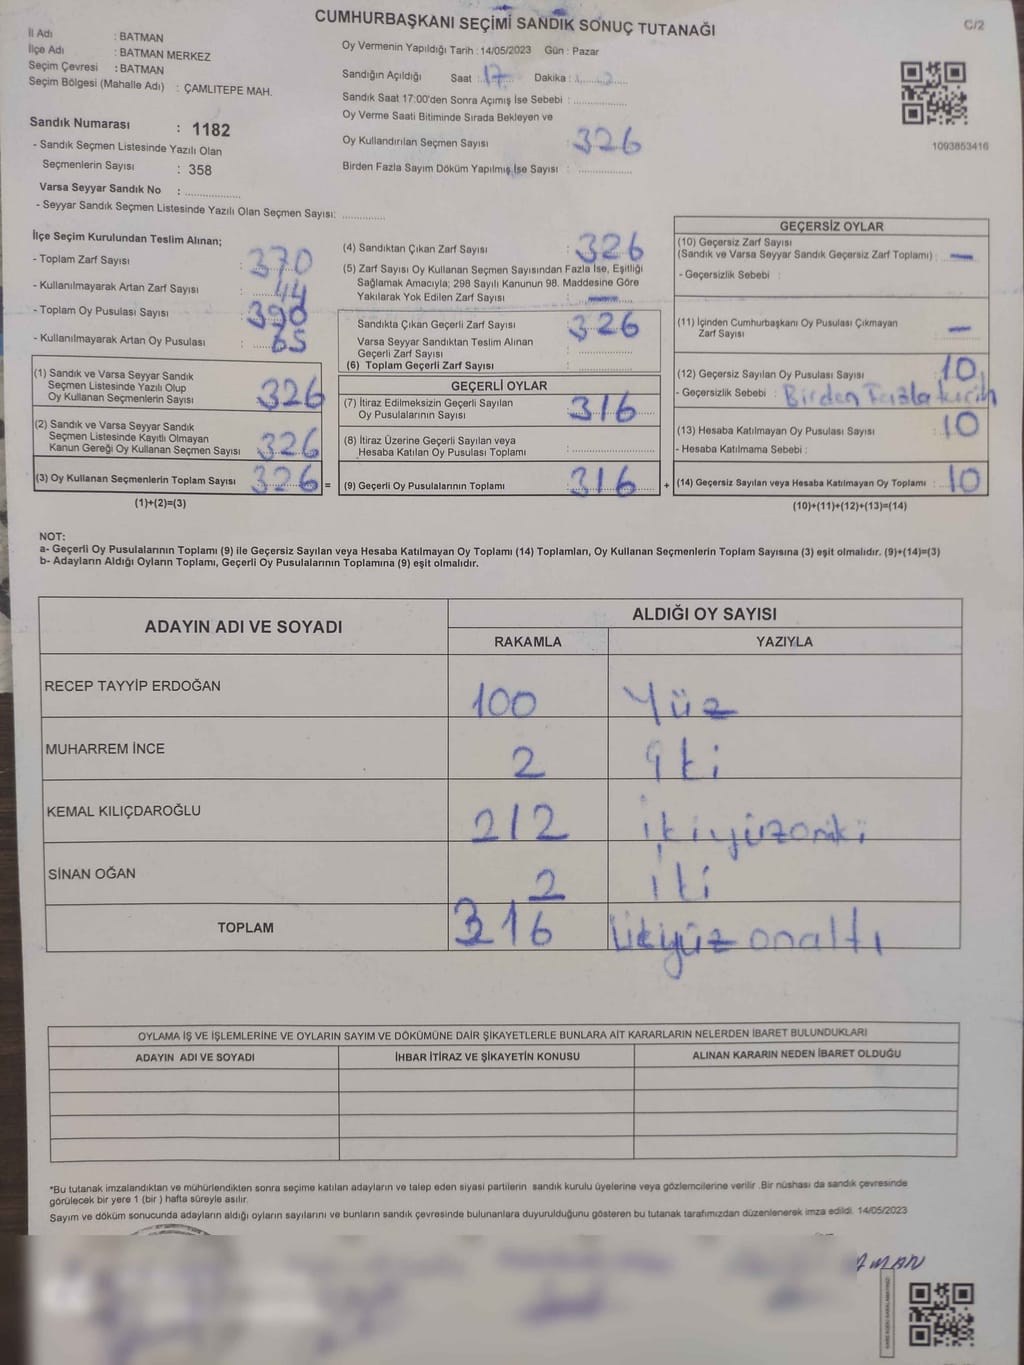 CUMHURBAŞKANI SEÇİMİ SANDIK SONUÇ TUTANAĞI
C/2
İl Adı : BATMAN
İlçe Adı : BATMAN MERKEZ
Seçim Çevresi : BATMAN
Seçim Bölgesi (Mahalle Adı) : ÇAMLITEPE MAH.
Sandık Numarası : 1182
- Sandık Seçmen Listesinde Yazılı Olan
Seçmenlerin Sayısı : 358
Varsa Seyyar Sandık No :
- Seyyar Sandık Seçmen Listesinde Yazılı Olan Seçmen Sayısı:
Oy Vermenin Yapıldığı Tarih : 14/05/2023 Gün : Pazar
Sandığın Açıldığı Saat : 17 Dakika :
Sandık Saat 17:00'den Sonra Açımış İse Sebebi :
Oy Verme Saati Bitiminde Sırada Bekleyen ve
Oy Kullandırılan Seçmen Sayısı : 326
Birden Fazla Sayım Döküm Yapılmış İse Sayısı :
1093853416
İlçe Seçim Kurulundan Teslim Alınan;
- Toplam Zarf Sayısı : 370
- Kullanılmayarak Artan Zarf Sayısı : 44
- Toplam Oy Pusulası Sayısı : 390
- Kullanılmayarak Artan Oy Pusulası : 65
(1) Sandık ve Varsa Seyyar Sandık
Seçmen Listesinde Yazılı Olup
Oy Kullanan Seçmenlerin Sayısı : 326
(2) Sandık ve Varsa Seyyar Sandık
Seçmen Listesinde Kayıtlı Olmayan
Kanun Gereği Oy Kullanan Seçmen Sayısı : 326
(3) Oy Kullanan Seçmenlerin Toplam Sayısı : 326 =
(1)+(2)=(3)
(4) Sandıktan Çıkan Zarf Sayısı : 326
(5) Zarf Sayısı Oy Kullanan Seçmen Sayısından Fazla İse, Eşitliği
Sağlamak Amacıyla; 298 Sayılı Kanunun 98. Maddesine Göre
Yakılarak Yok Edilen Zarf Sayısı : —
Sandıkta Çıkan Geçerli Zarf Sayısı : 326
Varsa Seyyar Sandıktan Teslim Alınan
Geçerli Zarf Sayısı :
(6) Toplam Geçerli Zarf Sayısı :
GEÇERLİ OYLAR
(7) İtiraz Edilmeksizin Geçerli Sayılan
Oy Pusulalarının Sayısı : 316
(8) İtiraz Üzerine Geçerli Sayılan veya
Hesaba Katılan Oy Pusulası Toplamı :
(9) Geçerli Oy Pusulalarının Toplamı : 316 +
GEÇERSİZ OYLAR
(10) Geçersiz Zarf Sayısı
(Sandık ve Varsa Seyyar Sandık Geçersiz Zarf Toplamı) : —
- Geçersizlik Sebebi :
(11) İçinden Cumhurbaşkanı Oy Pusulası Çıkmayan
Zarf Sayısı : —
(12) Geçersiz Sayılan Oy Pusulası Sayısı : 10
- Geçersizlik Sebebi : Birden Fazla
(13) Hesaba Katılmayan Oy Pusulası Sayısı : 10
- Hesaba Katılmama Sebebi :
(14) Geçersiz Sayılan veya Hesaba Katılmayan Oy Toplamı : 10
(10)+(11)+(12)+(13)=(14)
NOT:
a- Geçerli Oy Pusulalarının Toplamı (9) ile Geçersiz Sayılan veya Hesaba Katılmayan Oy Toplamı (14) Toplamları, Oy Kullanan Seçmenlerin Toplam Sayısına (3) eşit olmalıdır. (9)+(14)=(3)
b- Adayların Aldığı Oyların Toplamı, Geçerli Oy Pusulalarının Toplamına (9) eşit olmalıdır.
ADAYIN ADI VE SOYADI
ALDIĞI OY SAYISI
RAKAMLA YAZIYLA
RECEP TAYYİP ERDOĞAN 100 Yüz
MUHARREM İNCE 2 iki
KEMAL KILIÇDAROĞLU 212 ikiyüzoniki
SİNAN OĞAN 2 iki
TOPLAM 316 Üçyüz onaltı
OYLAMA İŞ VE İŞLEMLERİNE VE OYLARIN SAYIM VE DÖKÜMÜNE DAİR ŞİKAYETLERLE BUNLARA AİT KARARLARIN NELERDEN İBARET BULUNDUKLARI
ADAYIN ADI VE SOYADI İHBAR İTİRAZ VE ŞİKAYETİN KONUSU ALINAN KARARIN NEDEN İBARET OLDUĞU
*Bu tutanak imzalandıktan ve mühürlendikten sonra seçime katılan adayların ve talep eden siyasi partilerin sandık kurulu üyelerine veya gözlemcilerine verilir .Bir nüshası da sandık çevresinde
görülecek bir yere 1 (bir ) hafta süreyle asılır.
Sayım ve döküm sonucunda adayların aldığı oyların sayılarını ve bunların sandık çevresinde bulunanlara duyurulduğunu gösteren bu tutanak tarafımızdan düzenlenerek imza edildi. 14/05/2023